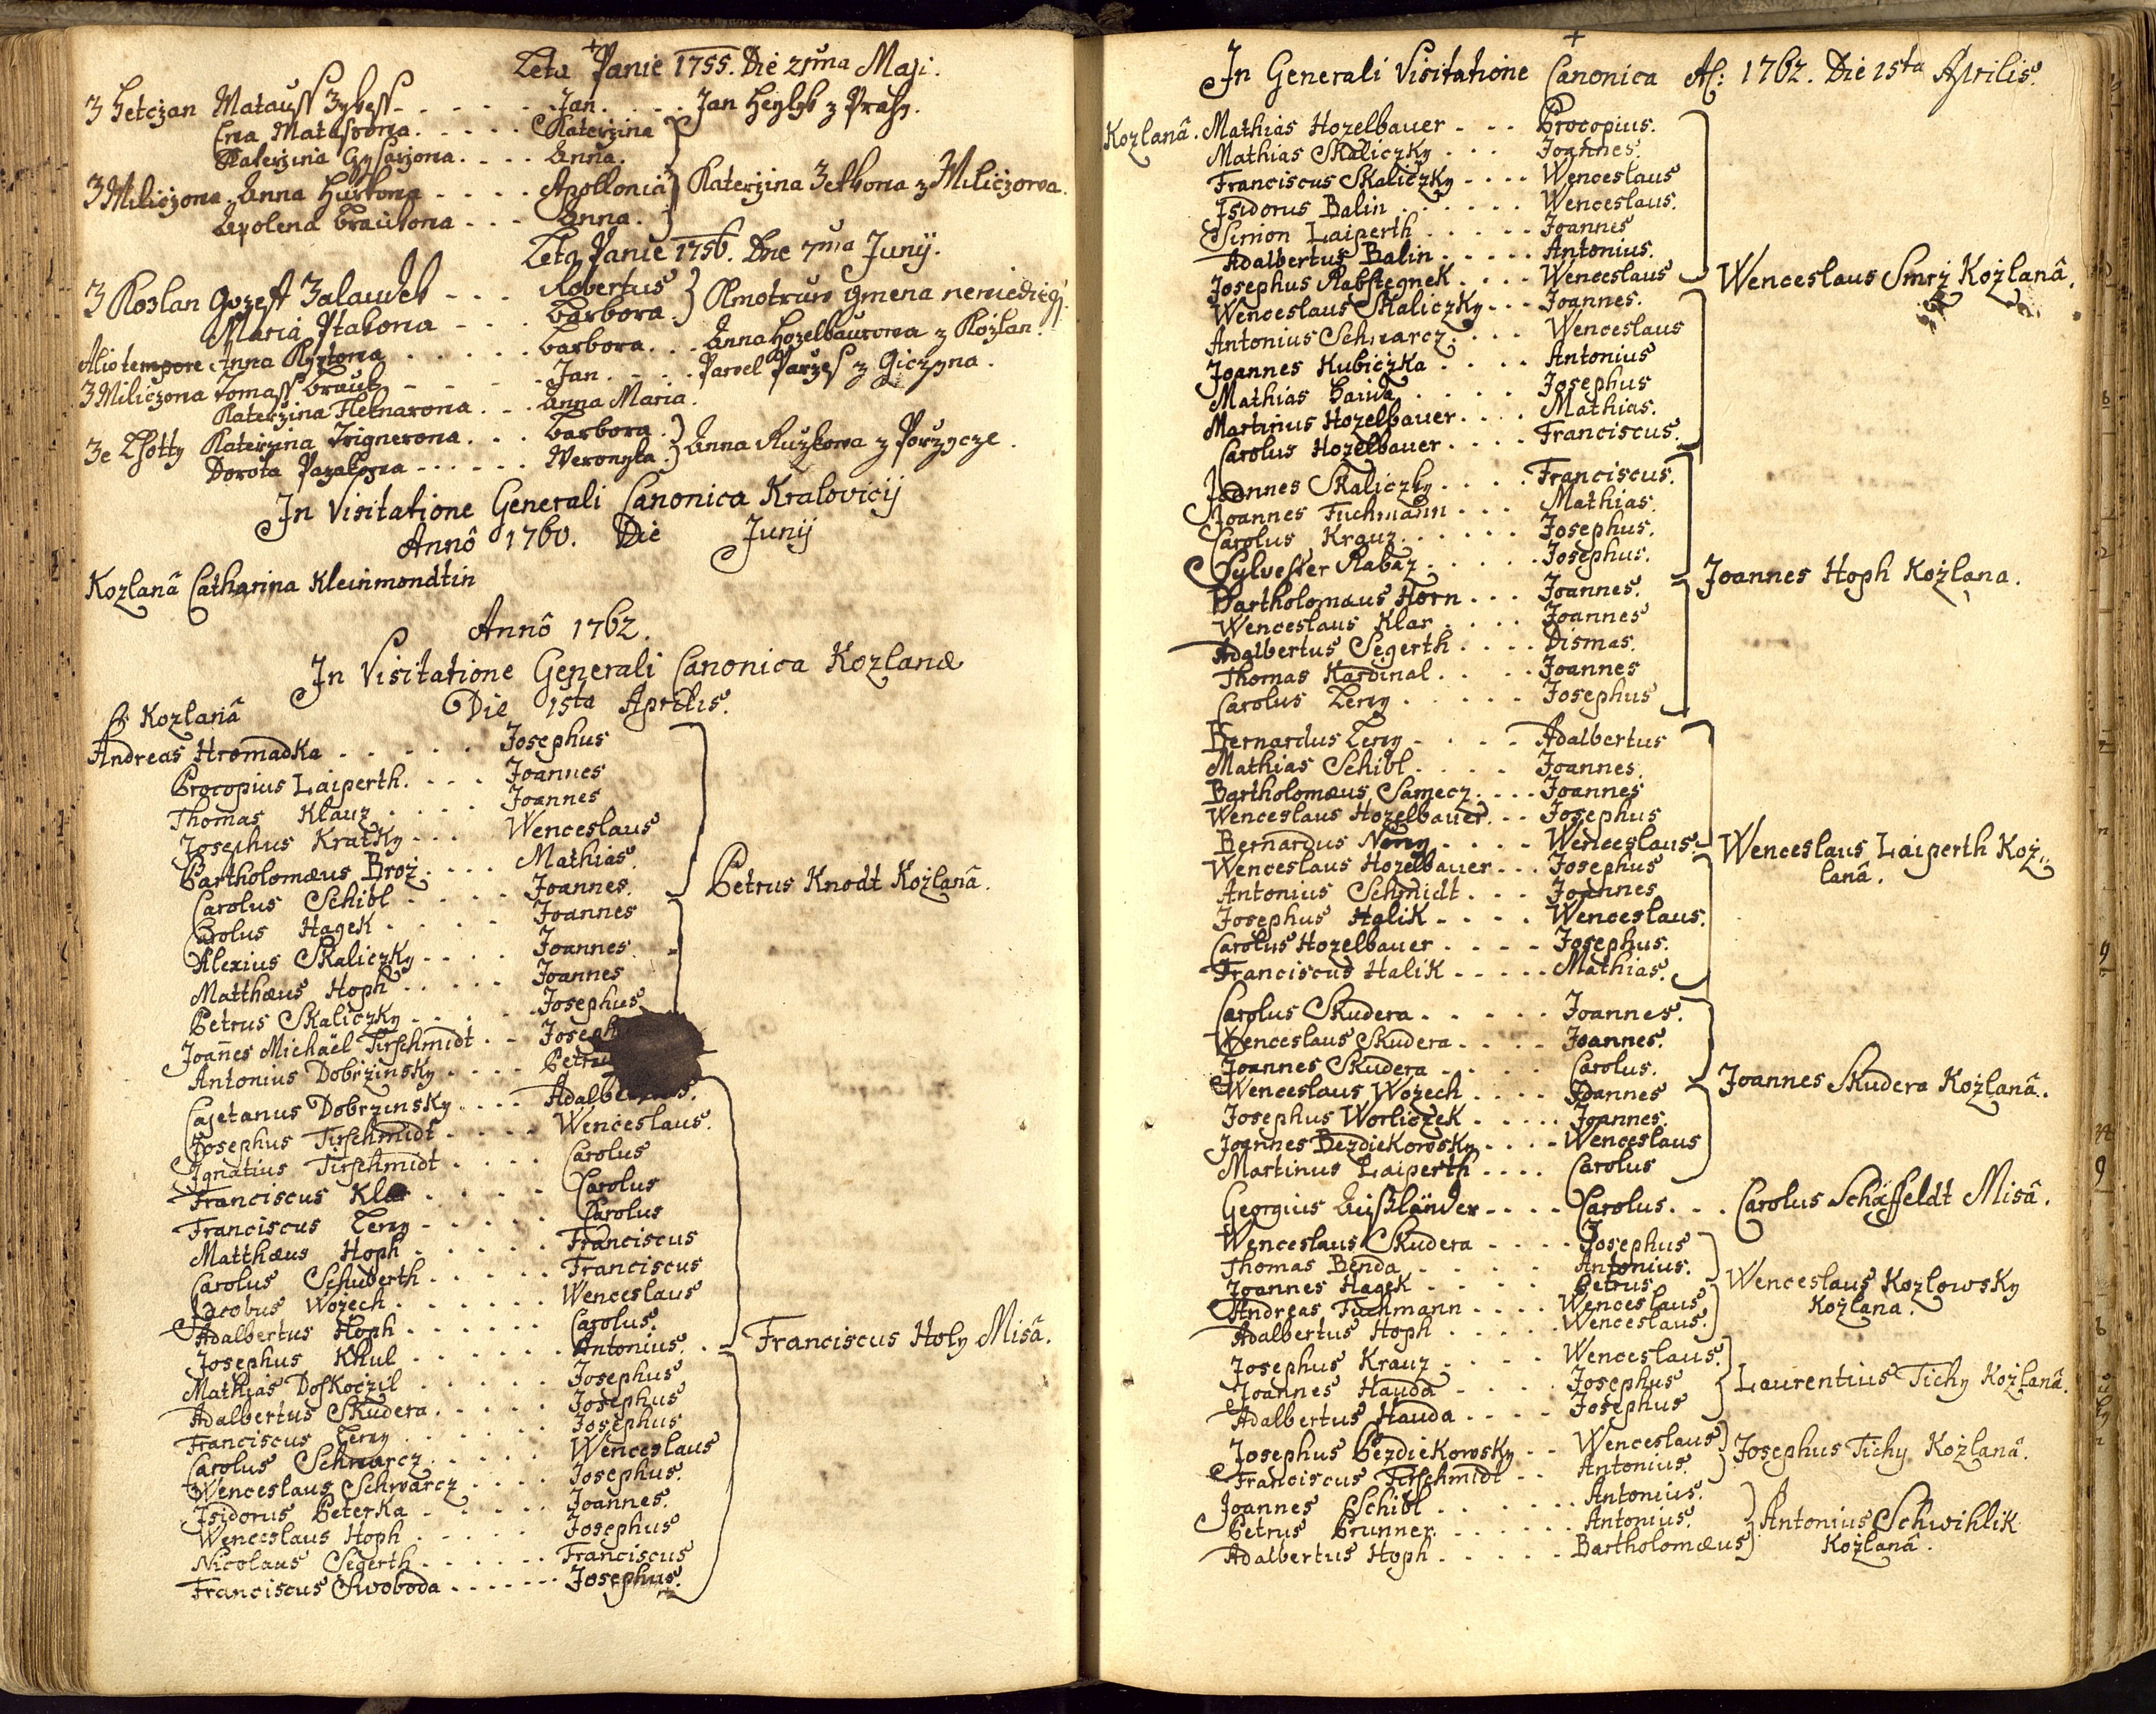 Leta Panie 1755. Die 21ma Maji.
Z Hetczan Matauss - - - - - Jan. - - - Jan z Prahy.
Ewa - - - - Katerzina
Katerzina - - - - Anna.
Z Miliczowa Anna Hurkowa - - - - Apollonia Katerzina z Miliczowa.
Apolena Brautowa - - - Anna.
Leta Panie 1756. Dne 7ma Junij.
Z Kozlan Gozeff - - - Robertus Kmotruw gmena
Maria Ptakowa - - - Barbora.
Alio tempore Anna - - - - - Barbora. - - Anna Hozelbaurowa z Kozlan.
Z Miliczowa Tomass Brauth - - - - - Jan. - - - Pawel z Giczyna.
Katerzina - - - Anna Maria.
Ze Lhotty Katerzina - - - Barbora. Anna Ruzkowa z
Dorota - - - - - - Weronyka.
In Visitatione Generali Canonica Kralovicij
Annô 1760. Die Junij
Kozlanâ Catharina Kleinmondtin
Annô 1762.
In Visitatione Generali Canonica Kozlanæ
Die 15ta Aprilis.
Kozlanâ
Andreas Hromadka - - - - - Josephus
Procopius Laiperth. - - - Joannes
Thomas Klauz - - - - Joannes
Josephus Kratky - - - Wenceslaus
Bartholomæus Broż. - - - Mathias.
Carolus Schibl - - - - Joannes. Petrus Knodt Kożlanâ.
Carolus Hagek - - - - Joannes
Alexius Skaliczky - - - - Joannes.
Matthæus Hoph - - - - - Joannes
Petrus Skaliczky - - - - - Josephus
Joañes Michaël Tirschmidt - - Joseph
Antonius Dobrzinsky - - - - Petru
Cajetanus Dobrzinsky - - - - Adalbe
Josephus Tirschmidt - - - - Wenceslaus.
Ignatius Tirschmidt - - - - Carolus
Franciscus - - - - Carolus
Franciscus Lerny - - - - - Carolus
Matthæus Hoph - - - - - Franciscus
Carolus Schuberth - - - - - Franciscus
Jacobus Wożech - - - - - - Wenceslaus
Adalbertus Hoph - - - - - - Carolus.
Josephus Khul - - - - - - Antonius. - Franciscus Holy Misâ.
Mathias Doskoczil - - - - - Josephus
Adalbertus Skudera - - - - - Josephus
Franciscus Lerny - - - - - - Josephus
Carolus Schwarcz - - - - - Wenceslaus
Wenceslaus Schwarcz - - - - Josephus.
Isidorus Peterka - - - - - Joannes.
Wenceslaus Hoph - - - - - Josephus
Nicolaus Segerth - - - - - - Franciscus
Franciscus Swoboda - - - - - - - Josephus.
In Generali Visitatione Canonica Aô: 1762. Die 15ta Aprilis.
Kozlanâ. Mathias Hozelbauer - - - Procopius.
Mathias Skaliczky - - - Joannes.
Franciscus Skaliczky - - - - Wenceslaus
Isidorus Balin - - - - - - Wenceslaus.
Simon Laiperth - - - - - Joannes
Adalbertus Balin - - - - - Antonius.
Josephus Rabstegnek - - - - Wenceslaus Wenceslaus Smrż Kożlanâ.
Wenceslaus Skaliczky - - - Joannes.
Antonius Schwarcz - - - - Wenceslaus
Joannes Kubiczka - - - - Antonius
Mathias - - - - - Josephus
Martinus Hozelbauer - - - - Mathias.
Carolus Hozelbauer - - - - Franciscus.
Joannes Skaliczky - - - - - Franciscus.
Joannes Fuchmann - - - Mathias.
Carolus Krauz - - - - - - Josephus.
Sylvester Rabaz - - - - - Josephus. Joannes Hoph Kożlana.
Bartholomæus Horn - - - Joannes.
Wenceslaus Klar - - - - Joannes
Adalbertus Segerth - - - - Dismas.
Thomas Kardinal - - - - - Joannes
Carolus Lerny - - - - - Josephus
Bernardus Lerny - - - - Adalbertus
Mathias Schibl - - - - Joannes
Bartholomæus Samecz - - - - Joannes
Wenceslaus Hozelbauer - - - Josephus
Bernardus - - - - Wenceslaus Wenceslaus Laiperth Koż,,
Wenceslaus Hozelbauer - - - Josephus lanâ.
Antonius Schmidt - - - Joannes
Josephus Halik - - - - Wenceslaus.
Carolus Hozelbauer - - - - Josephus.
Franciscus Halik - - - - - Mathias.
Carolus Skudera - - - - - Joannes.
Wenceslaus Skudera - - - - Joannes.
Joannes Skudera - - - - - Carolus. Joannes Skudera Kożlanâ.
Wenceslaus Wożech - - - - Joannes
Josephus Worliczek - - - - - Joannes.
Joannes Bezdiekowsky - - - - Wenceslaus
Martinus Laiperth - - - - Carolus
Georgius - - - - Carolus - - - Carolus Schäffeldt Misâ.
Wenceslaus Skudera - - - - Josephus
Thomas Benda - - - - - Antonius.
Joannes Hagek - - - - Petrus Wenceslaus Kozlowsky
Andreas Fuchmann - - - - Wenceslaus Kożlana.
Adalbertus Hoph - - - - - Wenceslaus.
Josephus Krauz - - - - Wenceslaus.
Joannes Hauda - - - - Josephus Laurentius Tichy Kożlanâ.
Adalbertus Hauda - - - - Josephus
Josephus Bezdiekowsky - - Wenceslaus Josephus Tichy Kożlanâ.
Franciscus Tirschmidt - - Antonius.
Joannes Schibl - - - - - - Antonius.
Petrus Brunner - - - - - - Antonius. Antonius Schwihlik
Adalbertus Hoph - - - - - Bartholomæus Kożlanâ.